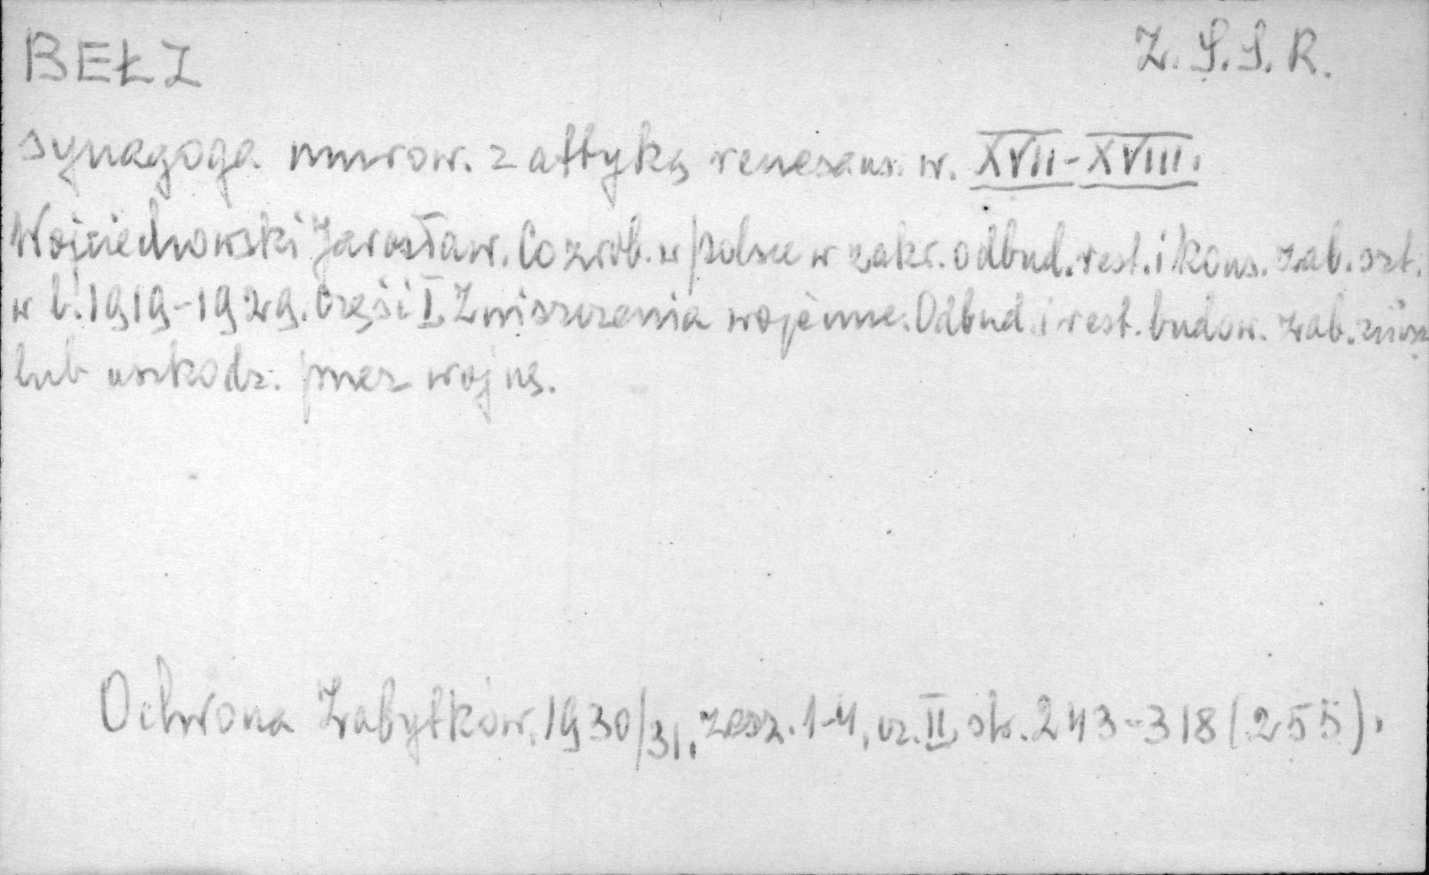 BEŁZ
Z.S.S.R.
synagoga murow. z attyką renesans. w. XVII-XVIII.
Wojciechowski Jarosław. Co zrob. w Polsce w zakr. odbud. rest. i kons. zab. szt.
w l. 1919-1929. Część I. Zniszczenia wojenne. Odbud. i rest. budow. zab. zniszcz
lub uszkodz. przez wojnę.
Ochrona Zabytków, 1930/31, zesz. 1-4, cz. II, str. 243-318 (255).